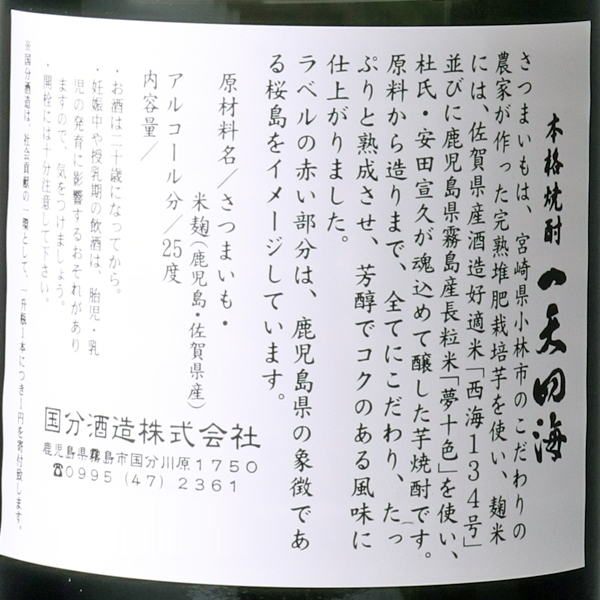 本格焼酎 一天四海
さつまいもは、宮崎県小林市のこだわりの
農家が作った完熟堆肥栽培芋を使い、麹米
には、佐賀県産酒造好適米「西海134号」
並びに鹿児島県霧島産長粒米「夢十色」を使い、
杜氏・安田宣久が魂込めて醸した芋焼酎です。
原料から造りまで、全てにこだわり、たっ
ぷりと熟成させ、芳醇でコクのある風味に
仕上がりました。
ラベルの赤い部分は、鹿児島県の象徴であ
る桜島をイメージしています。
原材料名/さつまいも・
米麹(鹿児島・佐賀県産)
アルコール分/25度
内容量/
・お酒は二十歳になってから。
・妊娠中や授乳期の飲酒は、胎児・乳
児の発育に影響するおそれがあり
ますので、気をつけましょう。
・開栓には十分注意して下さい。
※国分酒造は、社会貢献の一環として、一升瓶1本につき1円を寄付致します。
国分酒造株式会社
鹿児島県霧島市国分川原1750
☎0995(47)2361